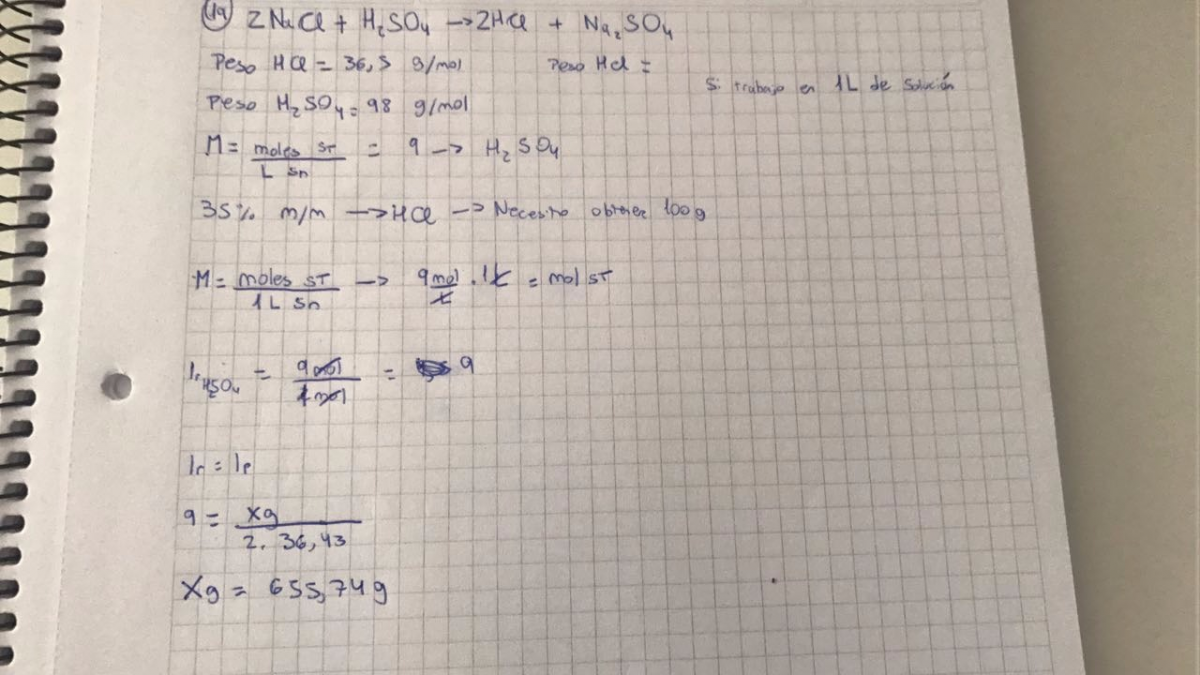 19 2NaCl + H₂SO₄ → 2HCl + Na₂SO₄
Peso HCl = 36,5 g/mol Peso HCl =
Si trabajo en 1L de solución
Peso H₂SO₄ = 98 g/mol
M = moles ST / L Sn = 9 → H₂SO₄
35% m/m → HCl → Necesito obtener 100g
M = moles ST / 1L Sn → 9 mol / L . 1L = mol ST
Ir H₂SO₄ = 9 mol / 1 mol = 9
Ir = Ip
9 = Xg / 2. 36,43
Xg = 655,74g